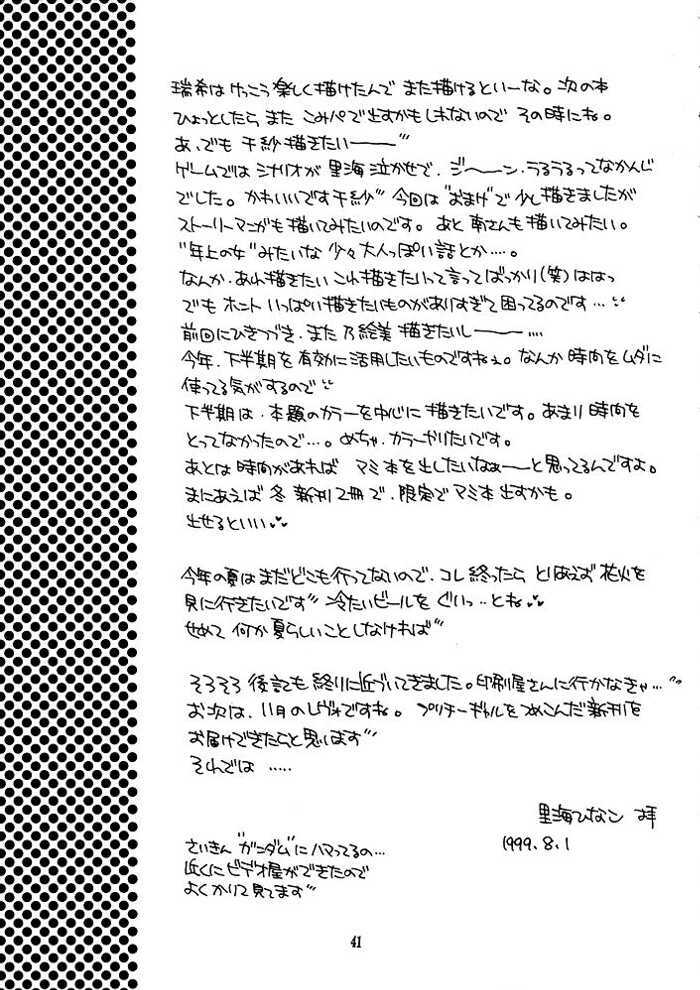 瑞希は けっこう楽しく描けたんで また描けるといーな。次の本
ひょっとしたら また こみパで出すかもしれないので その時にね。
あ、でも 千紗描きたいーーー"
ゲームでは シナリオが 里海泣かせで、ジ～～ン、うるうるってなかんじ
でした。かわいいです千紗" 今回は "おまけ"で 少し描きましたが
ストーリーマンガも描いてみたいのです。あと 南さんも描いてみたい。
"年上の女"みたいな 少々大人っぽい話とか‥‥。
なんか、あれ描きたい これ描きたいって言ってばっかり(笑)ははっ
でも ホント いっぱい描きたいものがありすぎて困ってるのです…
前回にひきつづき、また 乃絵美 描きたいしーーー‥‥
今年、下半期を有効に活用したいものですねぇ。なんか時間をムダに
使ってる気がするので
下半期は、本題のカラーを中心に描きたいです。あまり時間を
とってなかったので…。めちゃ、カラーやりたいです。
あとは時間があれば マミ本を出したいなぁーーと思ってるんですよ。
まにあえば 冬 新刊2冊で、限定でマミ本出すかも。
出せるといい♥♥
今年の夏はまだどこも行ってないので、コレ終ったら とりあえず 花火を
見に行きたいです" 冷たいビールを ぐいっ‥とね♥♥
せめて 何か夏らしいことしなければ"
そろそろ 後記も 終りに近づいてきました。印刷屋さんに行かなきゃ…"
お次は、11月のレヴォですね。 プリチーギャルを つめこんだ新刊を
お届けできたらと思います"
それでは ‥‥‥
里海ひなこ 拝
1999.8.1
さいきん "ガンダム"に ハマってるの…
近くに ビデオ屋ができたので
よく かりて 見てます"
41